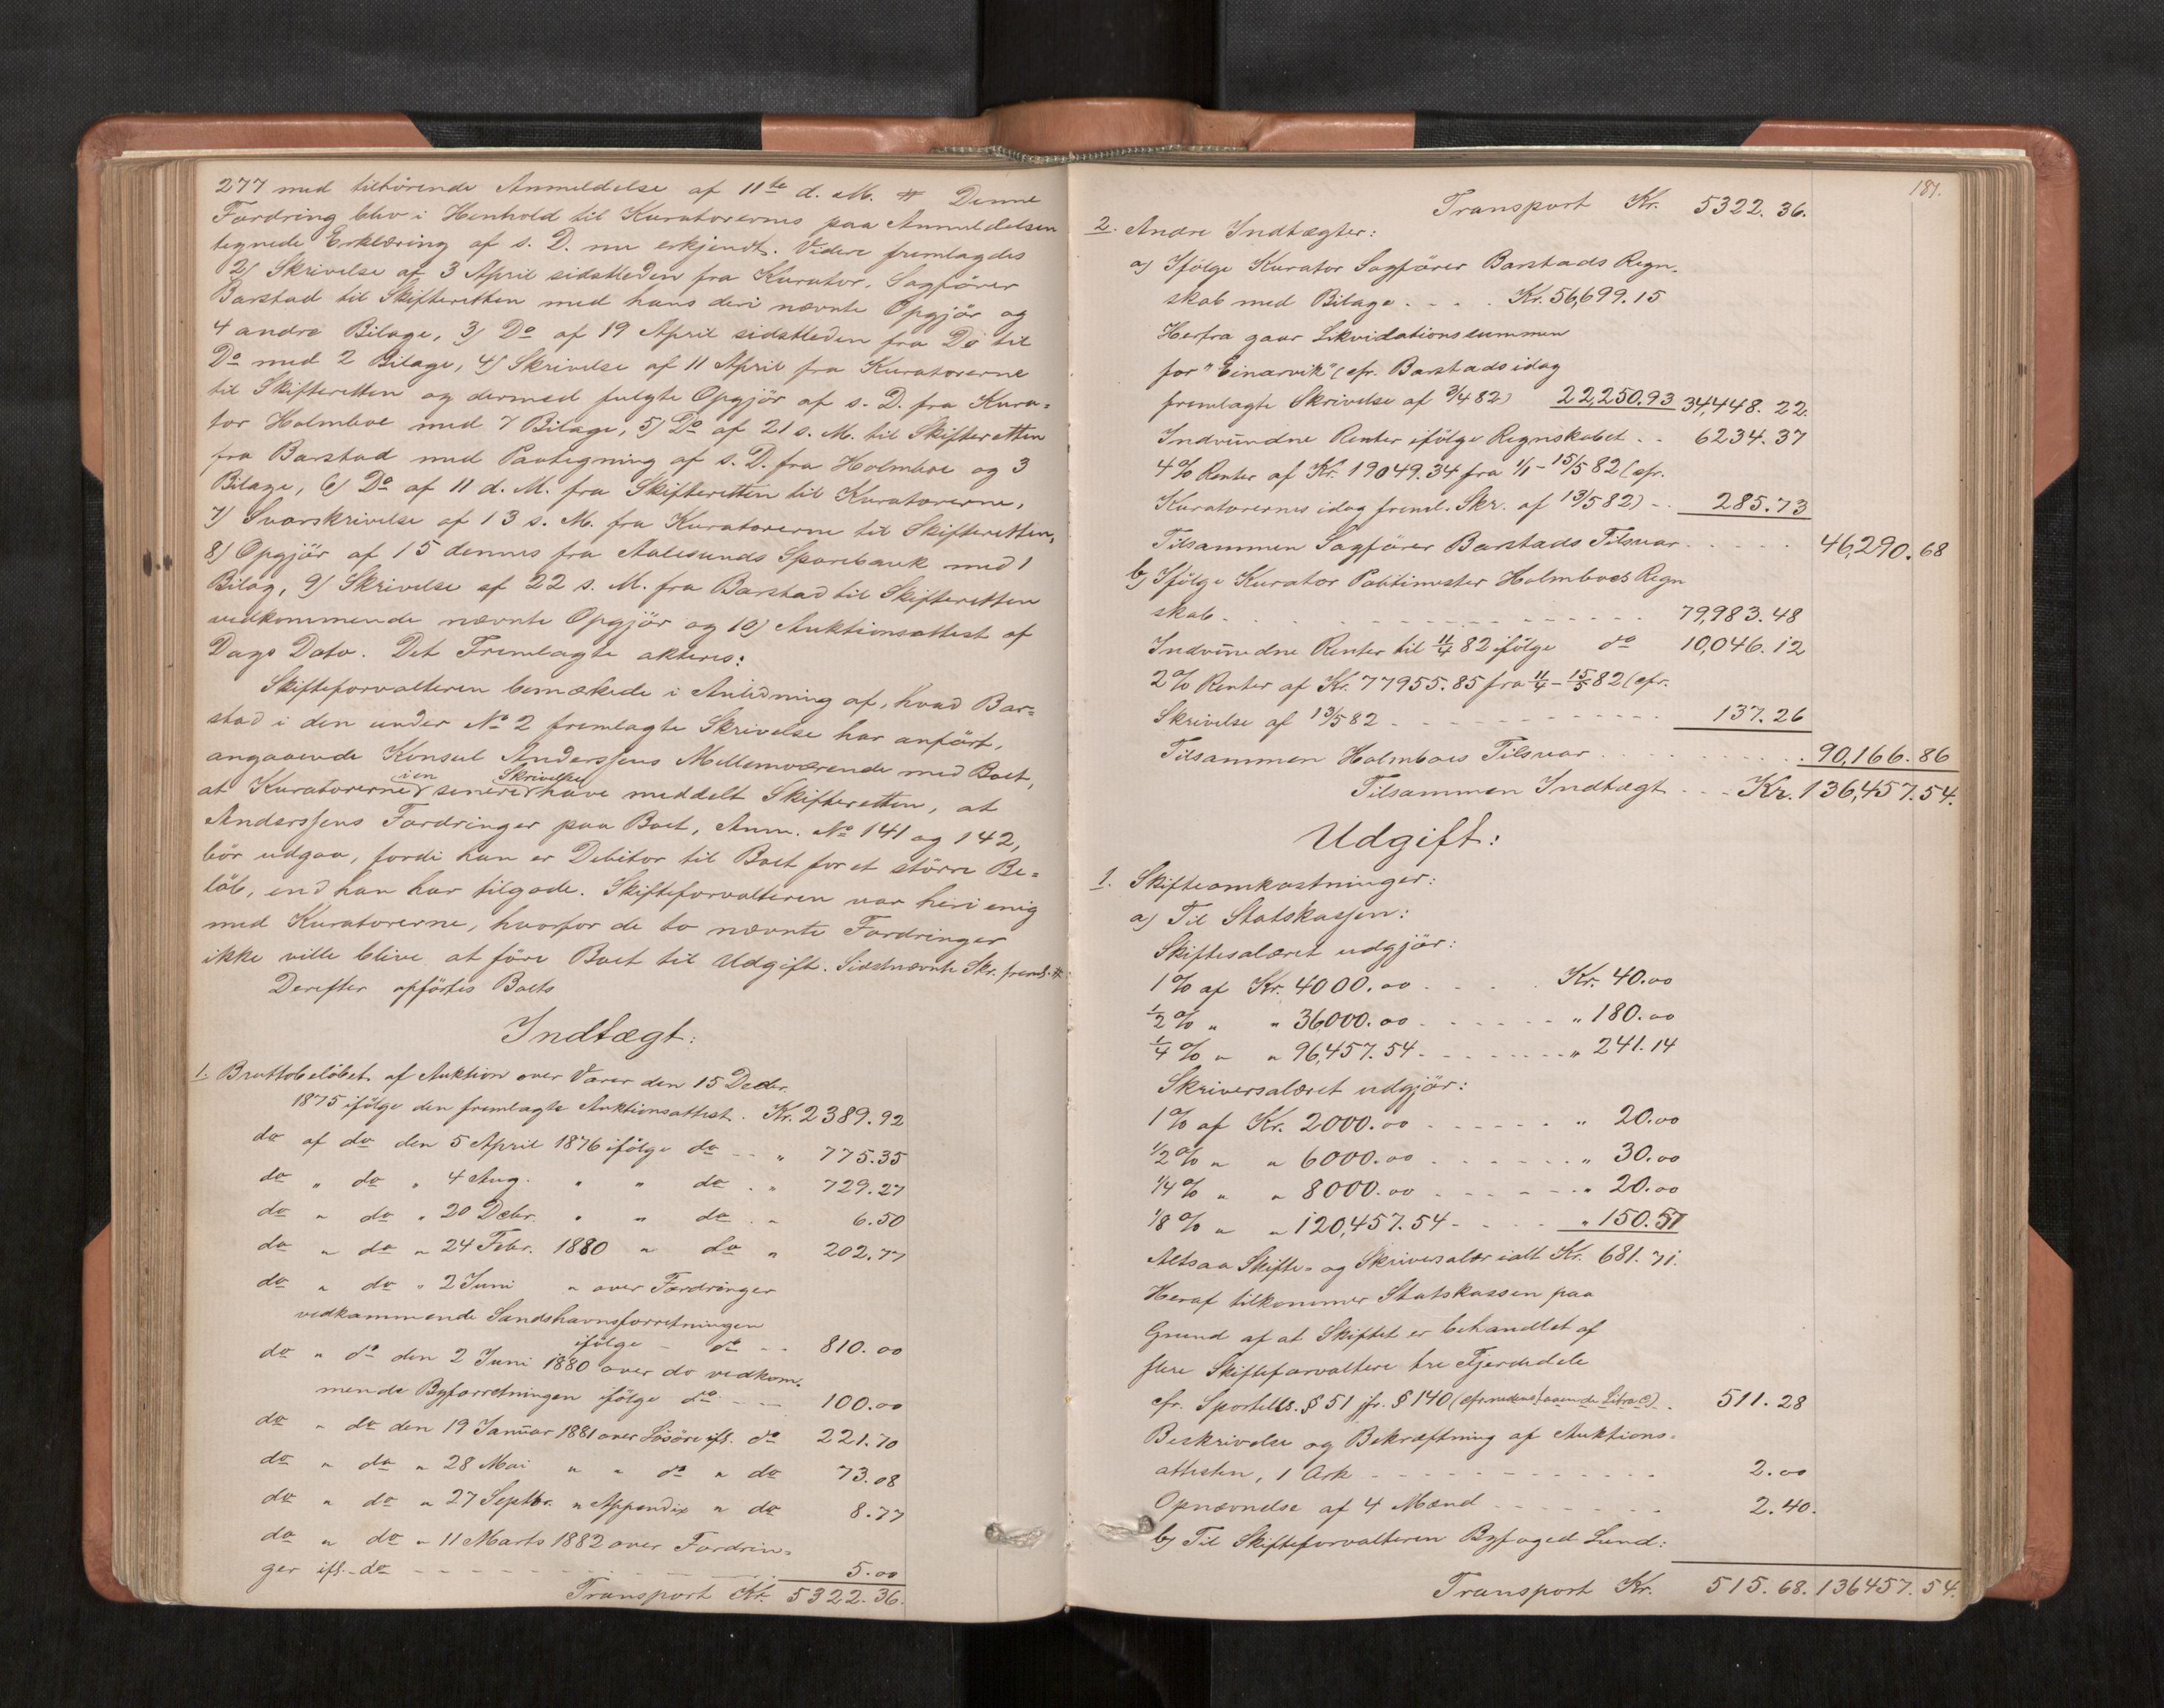 277 med tilhørende Anmeldelse af 11te d. M. # Denne
Fordring blev i Henhold til Kuratorernes paa Anmeldelsen
tegnede Erklæring af s. D. nu erkjendt. Videre fremlagdes
2) Skrivelse af 3 April sidstleden fra Kurator, Sagfører
Barstad til Skifteretten med hans deri nævnte Opgjør og
4 andre Bilage, 3) Do af 19 April sidstleden fra Do til
Do med 2 Bilage, 4) Skrivelse af 11 April fra Kuratorerne
til Skifteretten og dermed fulgte Opgjør af s. D. fra Kura=
tor Holmboe med 7 Bilage, 5) Do af 21 s. M. til Skifteretten
fra Barstad med Paategning af s. D. fra Holmboe og 3
Bilage, 6) Do af 11 d. M. fra Skifteretten til Kuratorerne,
7) Svarskrivelse af 13 s. M. fra Kuratorerne til Skifteretten,
8) Opgjør af 15 dennes fra Aalesunds Sparebank med 1
Bilag, 9) Skrivelse af 22 s. M. fra Barstad til Skifteretten
vedkommende nævnte Opgjør og 10) Auktionsattest af
Dags Dato. Det Fremlagte akteres:
Skifteforvalteren bemærkede i Anledning af, hvad Bar=
stad i den under No 2 fremlagte Skrivelse har anført,
angaaende Konsul Anderssens Mellemværende med Boet,
at Kuratorerne i en senere Skrivelse have meddelt Skifteretten, at
Anderssens Fordringer paa Boet, Anm. No 141 og 142,
bør udgaa, fordi han er Debitor til Boet for et større Be=
løb, end han har tilgode. Skifteforvalteren var heri enig
med Kuratorerne, hvorfor de to nævnte Fordringer
ikke ville blive at føre Boet til Udgift. Sidstnævnte Skr. freml. #
Derefter opførtes Boets
Indtægt:
1. Bruttobeløbet af Auktion over Varer den 15 Decbr.
1875 ifølge den fremlagte Auktionsattest . Kr. 2389.92
do af do den 5 April 1876 ifølge do - - " 775.35
do " do " 4 Aug. " " do . " 729.27
do " do " 20 Decbr. " " do . " 6.50
do " do " 24 Febr. 1880 " do " 202.77
do " do " 2 Juni " over Fordringer
vedkommende Sandshavnsforretningen
ifølge - do - - 810.00
do " do den 2 Juni 1880 over do vedkom=
mende Byforretningen ifølge do - - 100.00
do " do den 19 Januar 1881 over Løsøre ifl. do 221.70
do " do " 28 Mai " " do " do 73.08
do " do " 27 Septbr. " Appendix " do 8.77
do " do " 11 Marts 1882 over Fordrin=
ger ifl. do - - - - - 5.00
Transport Kr. 5322.36.
181.
Transport Kr. 5322.36.
2. Andre Indtægter:
a) Ifølge Kurator Sagfører Barstads Regn=
skab med Bilage . . . . Kr. 56,699.15
Herfra gaar Likvidationssummen
for "Einarvik" (cfr. Barstads idag
fremlagte Skrivelse af 3/4 82) 22,250.93 34,448.22.
Indvundne Renter ifølge Regnskabet . . 6234.37
4% Renter af Kr. 19049.34 fra 1/1 - 15/5 82 (cfr.
Kuratorernes idag freml. Skr. af 13/5 82) - . 285.73
Tilsammen Sagfører Barstads Tilsvar . . . . . 46,290.68
b) Ifølge Kurator Politimester Holmboes Regn
skab . . . . . . 79,983.48
Indvundne Renter til 11/4 82 ifølge do 10,046.12
2% Renter af Kr. 77955.85 fra 11/4 - 15/5 82 (cfr.
Skrivelse af 13/5 82 - - - - - 137.26
Tilsammen Holmboes Tilsvar . . . . . 90,166.86
Tilsammen Indtægt - - - Kr. 136,457.54.
Udgift:
1. Skifteomkostninger:
a) Til Statskassen:
Skiftesalæret udgjør:
1% af Kr. 4000.00 . . . . Kr. 40.00
1/2 % " " 36000.00 - - - - - " 180.00
1/4 % " " 96,457.54 - - - - - " 241.14
Skriversalæret udgjør:
1% af Kr. 2000.00 - - - - - " 20.00
1/2 % " " 6000.00 - - - - - " 30.00
1/4 % " " 8000.00 - - - - - " 20.00
1/8 % " " 120,457.54 - - - - " 150.57
Altsaa Skifte- og Skriversalær ialt Kr. 681.71.
Heraf tilkommer Statskassen paa
Grund af at Skiftet er behandlet af
flere Skifteforvaltere tre Fjerdedele
cfr. Sportells. § 51 jfr. § 140 (cfr. nedenstaaende Litra c) . 511.28
Beskrivelse og Bekræftning af Auktions=
attesten, 1 Ark - - - - - 2.00
Opnævnelse af 4 Mænd - - - - - 2.40.
b) Til Skifteforvalteren Byfoged Lund:
Transport Kr. 515.68. 136457.54.